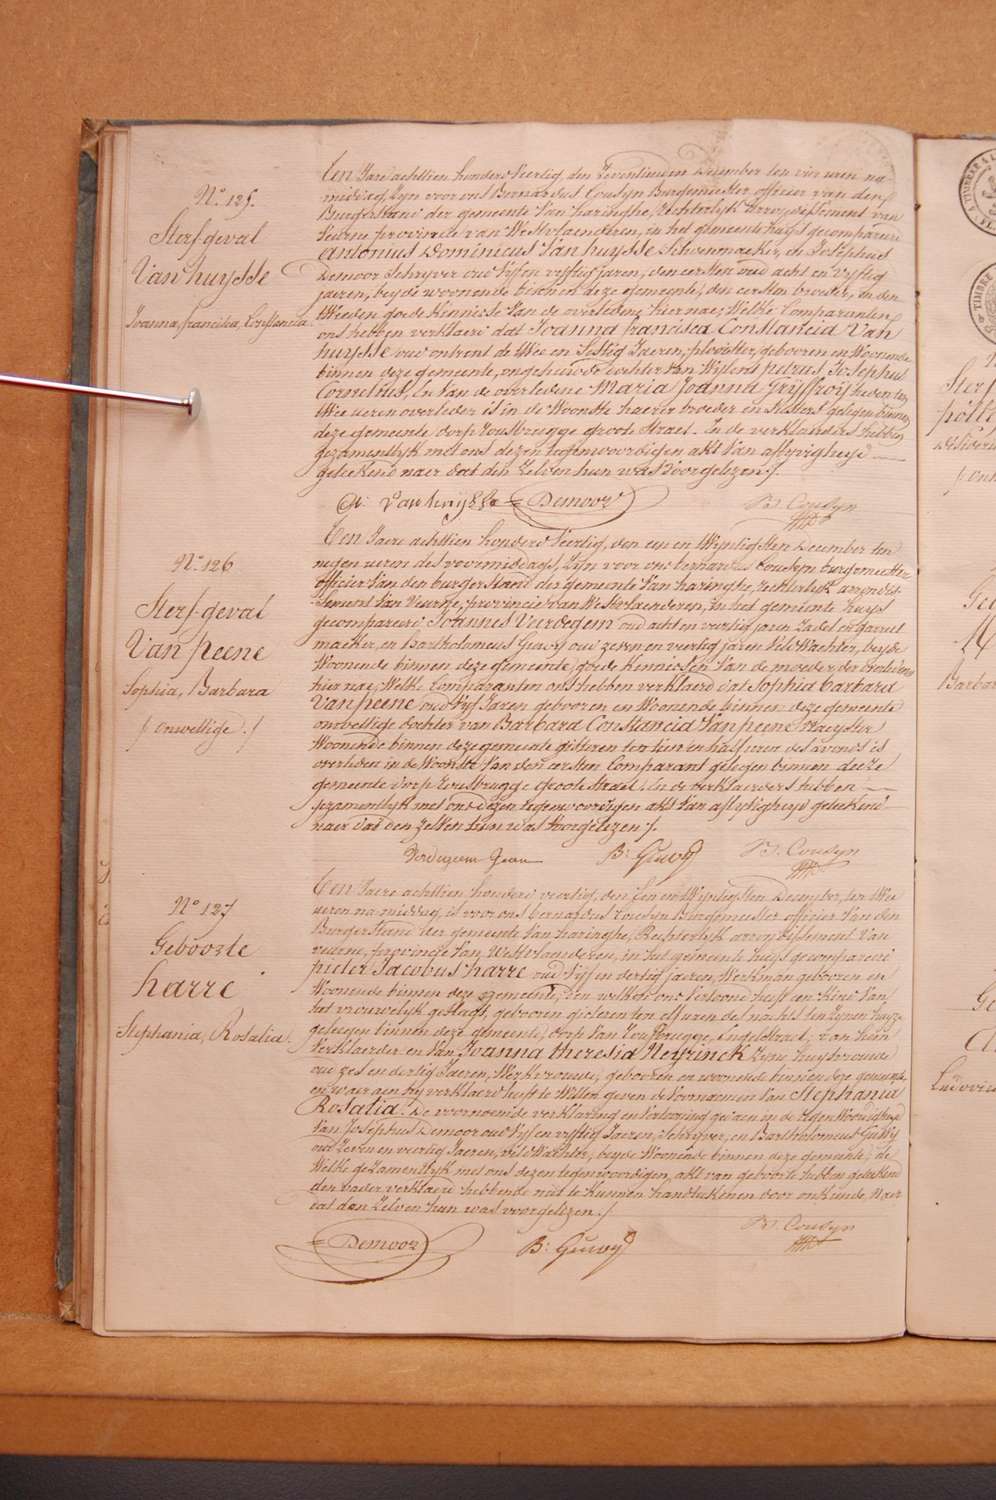 N.º 125.
Sterf-geval
Van huysse
Joanna, francisca, Constancia.
Den Jare achttien honderd Veertig, den Zeventienden December ten vier uren na
middag, Zyn voor ons Bernardus Coudyn Burgemeester officier van den
Burgerstand der gemeente Van haringhe, Rechterlyk arrondissement van
Veurne, provincie van Westvlaenderen, in het gemeente huys gecompareerd
Antonius Dominicus Van huysse Schoenmaeker, en Josephus
Demoor Schryver oud Vyf en vyftig jaren, den eersten oud acht en vyftig
jaeren, beyde woonende binnen deze gemeente, den eersten broeder, en den
tweeden goede Kennisse Van de overledene hier nae, Welke Comparanten
ons hebben verklaerd dat Joanna francisca Constancia Van
huysse oud ontrent de twee en Sestig Jaeren, gebooren en Woonende
binnen deze gemeente, ongehuwde dochter van Wylend petrus Josephus
Cornelius, en Van de overledene Maria Joanna heden ten
twee ueren overleden is in de Woonste haerer broeder en Zusters gelegen binnen
deze gemeente dorp Rousbrugge groote Straet. En de verklaerders hebben
gezamentlyk met ons dezen tegenwoordigen akt Van aflyvigheyd
geteekend naer dat den Zelven hun was Voorgelezen /.
A: Vanhuysse Demoor B. Coudyn
N.º 126
Sterf-geval
Van peene
Sophia, Barbara
/ onwettige /
Den Jaere achttien honderd Veertig, den een en Twyntigsten December ten
negen ueren des voormiddags, Zyn voor ons bernardus Coudyn burgemeester
officier Van den burgerstand der gemeente Van haringhe, rechterlyk arrondis-
-sement Van Veurne, provincie van Westvlaenderen, in het gemeente huys
gecompareerd Joannes Verdegem oud acht en veertig jaren Zadel en garreel
maeker, en Bartholomeus Gewy oud zeven en veertig jaren Veld Wachter, beyde
Woonende binnen deze gemeente, goede Kennissen Van de moeder der Overledene
hier nae, Welke Comparanten ons hebben verklaerd dat Sophia barbara
Vanpeene oud Vyf Jaren gebooren en Woonende binnen deze gemeente
onwettige dochter van Barbara Constancia Vanpeene
Woonende binnen deze gemeente gisteren ten tien en half uren des avonds is
overleden in de Woonste Van den eersten Comparant gelegen binnen deeze
gemeente dorp Rousbrugge groote Straet. En de verklaerders hebben
gezamentlyk met ons dezen tegenwoordigen akt Van aflyvigheyd geteekend
naer dat den Zelven hun was Voorgelezen /.
Verdegem Jean B: Gewy B. Coudyn
N.º 127
Geboorte
harre
Stephania, Rosalia.
Den Jaere achttien honderd veertig, den een en Twyntigsten December, ten twee
ueren na middag, is voor ons bernardus Coudyn Burgemeester officier Van den
Burgerstand der gemeente Van haringhe, Rechterlyk arrondissement Van
veurne, provincie Van Westvlaenderen, in het gemeente huys gecompareerd
pieter Jacobus harre oud Vyf en dertig jaeren, Werkman gebooren en
Woonende binnen deze gemeente, den welken ons Vertoond heeft een Kind Van
het vrouwelyk geslagt, gebooren gisteren ten elf uren des nachts ten Zynen huyze
gelegen binnen deze gemeente, dorp Van Rousbrugge, Van hem
Verklaerder en Van Joanna theresia Neyrinck Zyne huysvrouwe
oud zes en dertig Jaeren, Werkvrouwe, gebooren en woonende binnen deze gemeente
en waer aen hy verklaerd heeft te Willen geven de Voornaemen Van Stephania
Rosalia. De voornoemde verklaring en Vertooning gedaen in de tegenwoordigheyd
Van Josephus Demoor oud Vyf en vyftig Jaeren, Schryver, en Bartholomeus Gewy
oud Zeven en veertig Jaeren, veld Wachter, beyde Woonende binnen deze gemeente; de
Welke gezamentlyk met ons dezen tegenwoordigen akt van geboorte hebben geteekend
den vader verklaerd hebbende niet te Kunnen handteekenen door onkunde, Naer
dat den Zelven hun was voorgelezen /.
Demoor B: Gewy B. Coudyn